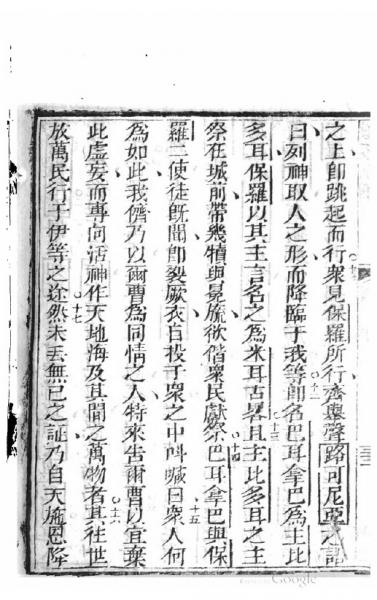 之上即跳起而行眾見保羅所行齊舉聲路可尼亞之話
曰列神取人之形而降臨于我等即名巴耳拿巴為主比
多耳保羅以其主言名之為米耳古畢且主比多耳之主
祭在城前帶幾犢與冕旒欲偕眾民獻祭巴耳拿巴與保
羅二使徒既聞即裂厥衣自投于眾之中呌喊曰眾人何
為如此我儕乃以爾曹為同情之人特來告爾曹以宜棄
此虛妄而專向活神作天地海及其間之萬物者其往世
放萬民行于伊等之途然未丟無己之証乃自天施恩降
十一
十二
十三
十四
十五
十六
十七
Google